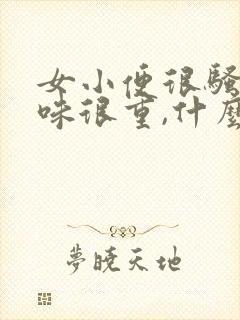 女小便很騷
味很重,什麼
夢曉天地